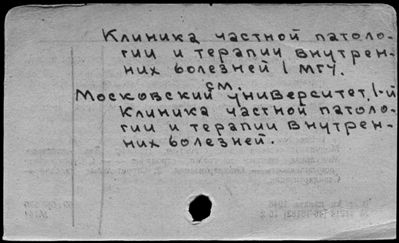 Клиника частной патоло-
гии и терапии внутрен-
них болезней I МГУ.
см.
Московский университет, I-й
Клиника частной патоло-
гии и терапии внутрен-
них болезней.